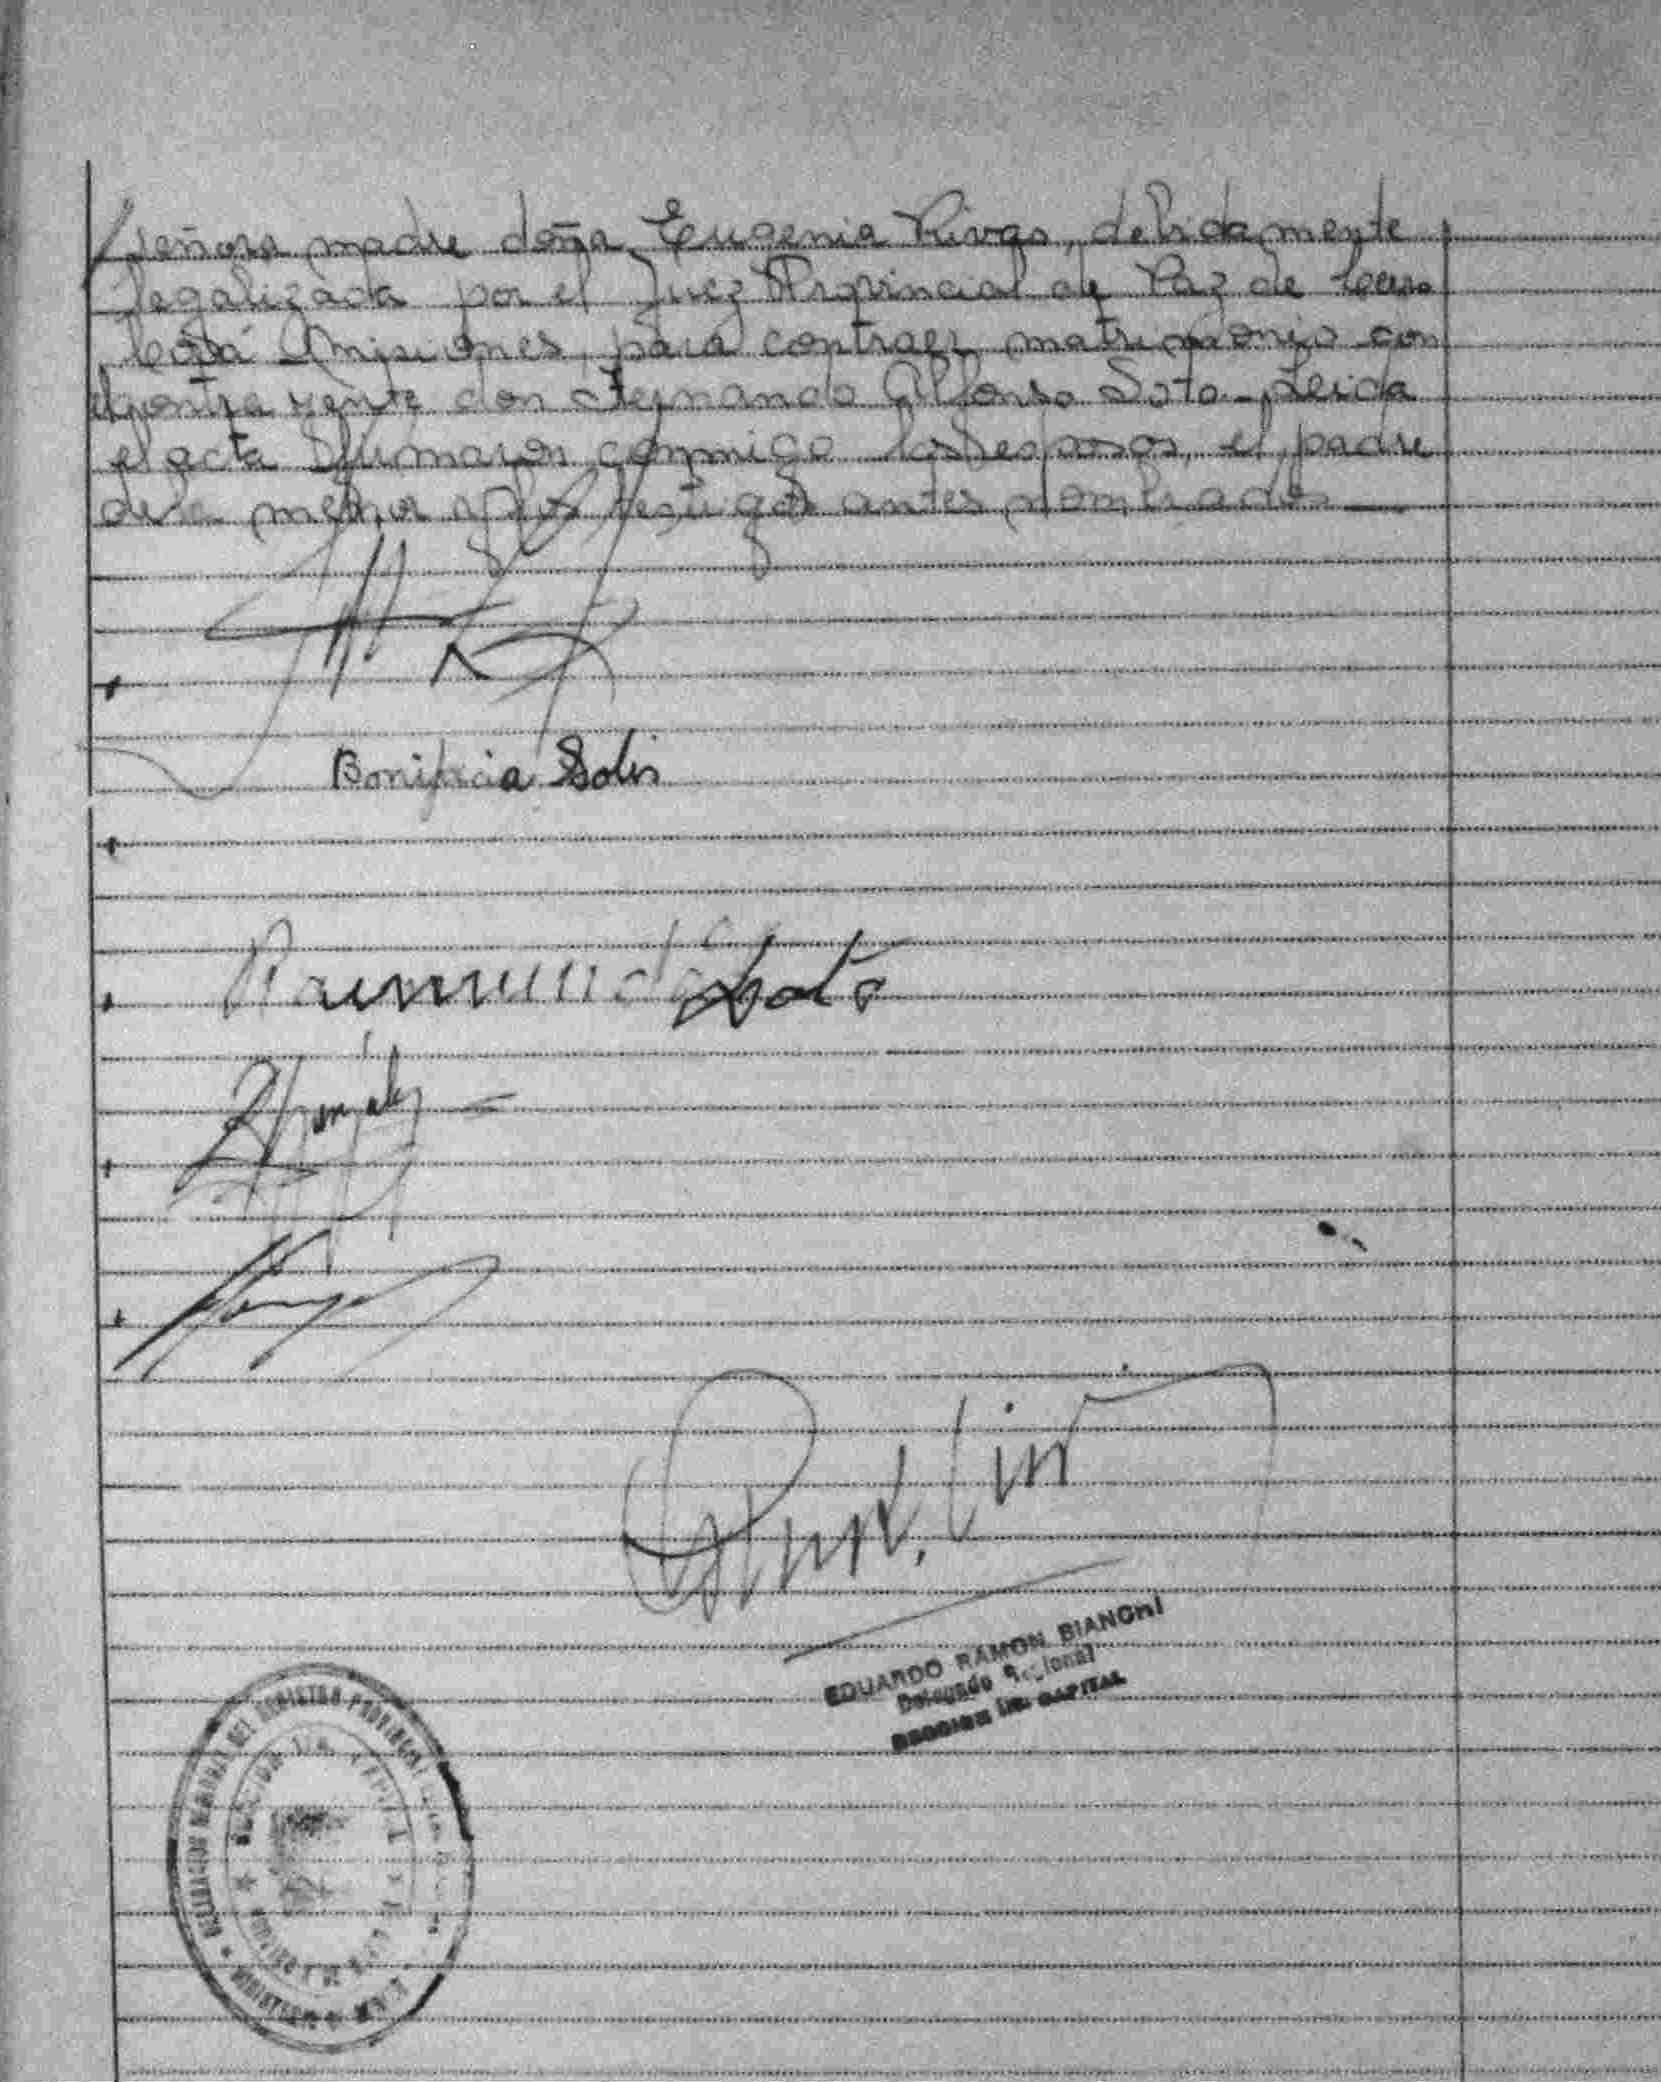 señora madre doña Eugenia Rivas, debidamente
legalizada por el Juez Provincial de Paz de Cerro
Corá Misiones, para contraer matrimonio con
el contrayente don Fernando Alfonso Soto - Leida
el acta firmaron conmigo los esposos, el padre
de la menor y los testigos antes nombrados
Bonifacia Solis
Raimundo Soto
EDUARDO RAMON BIANCHI
Delegado
SECCION 1ra. CAPITAL
DELEGACION DEL REGISTRO PROVINCIAL
SECCION 1ra. CAPITAL